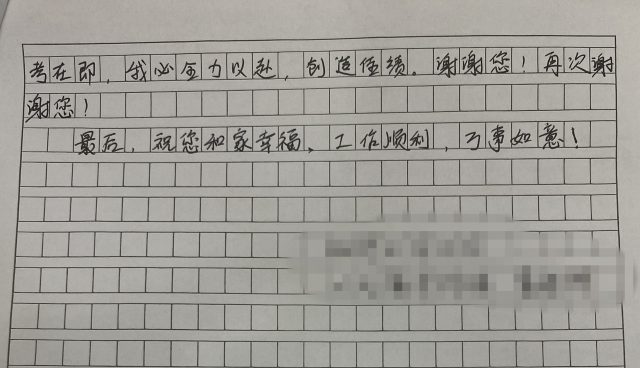 考在即，我必全力以赴，创造佳绩。谢谢您！再次谢
谢您！
最后，祝您和家幸福，工作顺利，万事如意！